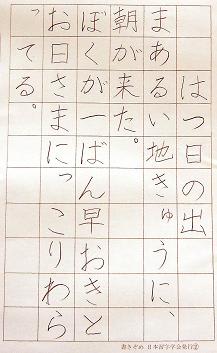 はつ日の出
まあるい地きゅうに、
朝が来た。
ぼくが一ばん早おきと
お日さまにっこりわら
ってる。
書きぞめ 日本習字学会発行②